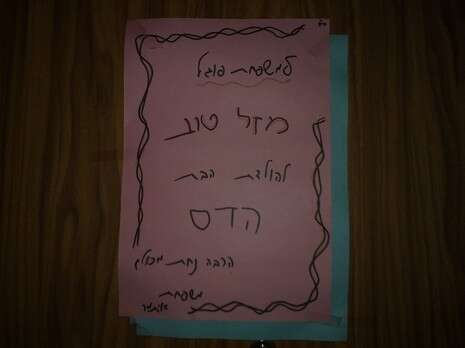 למשפחת פוגל
מזל טוב
להולדת הבת
הדס
הרבה נחת מכולן
משפחת